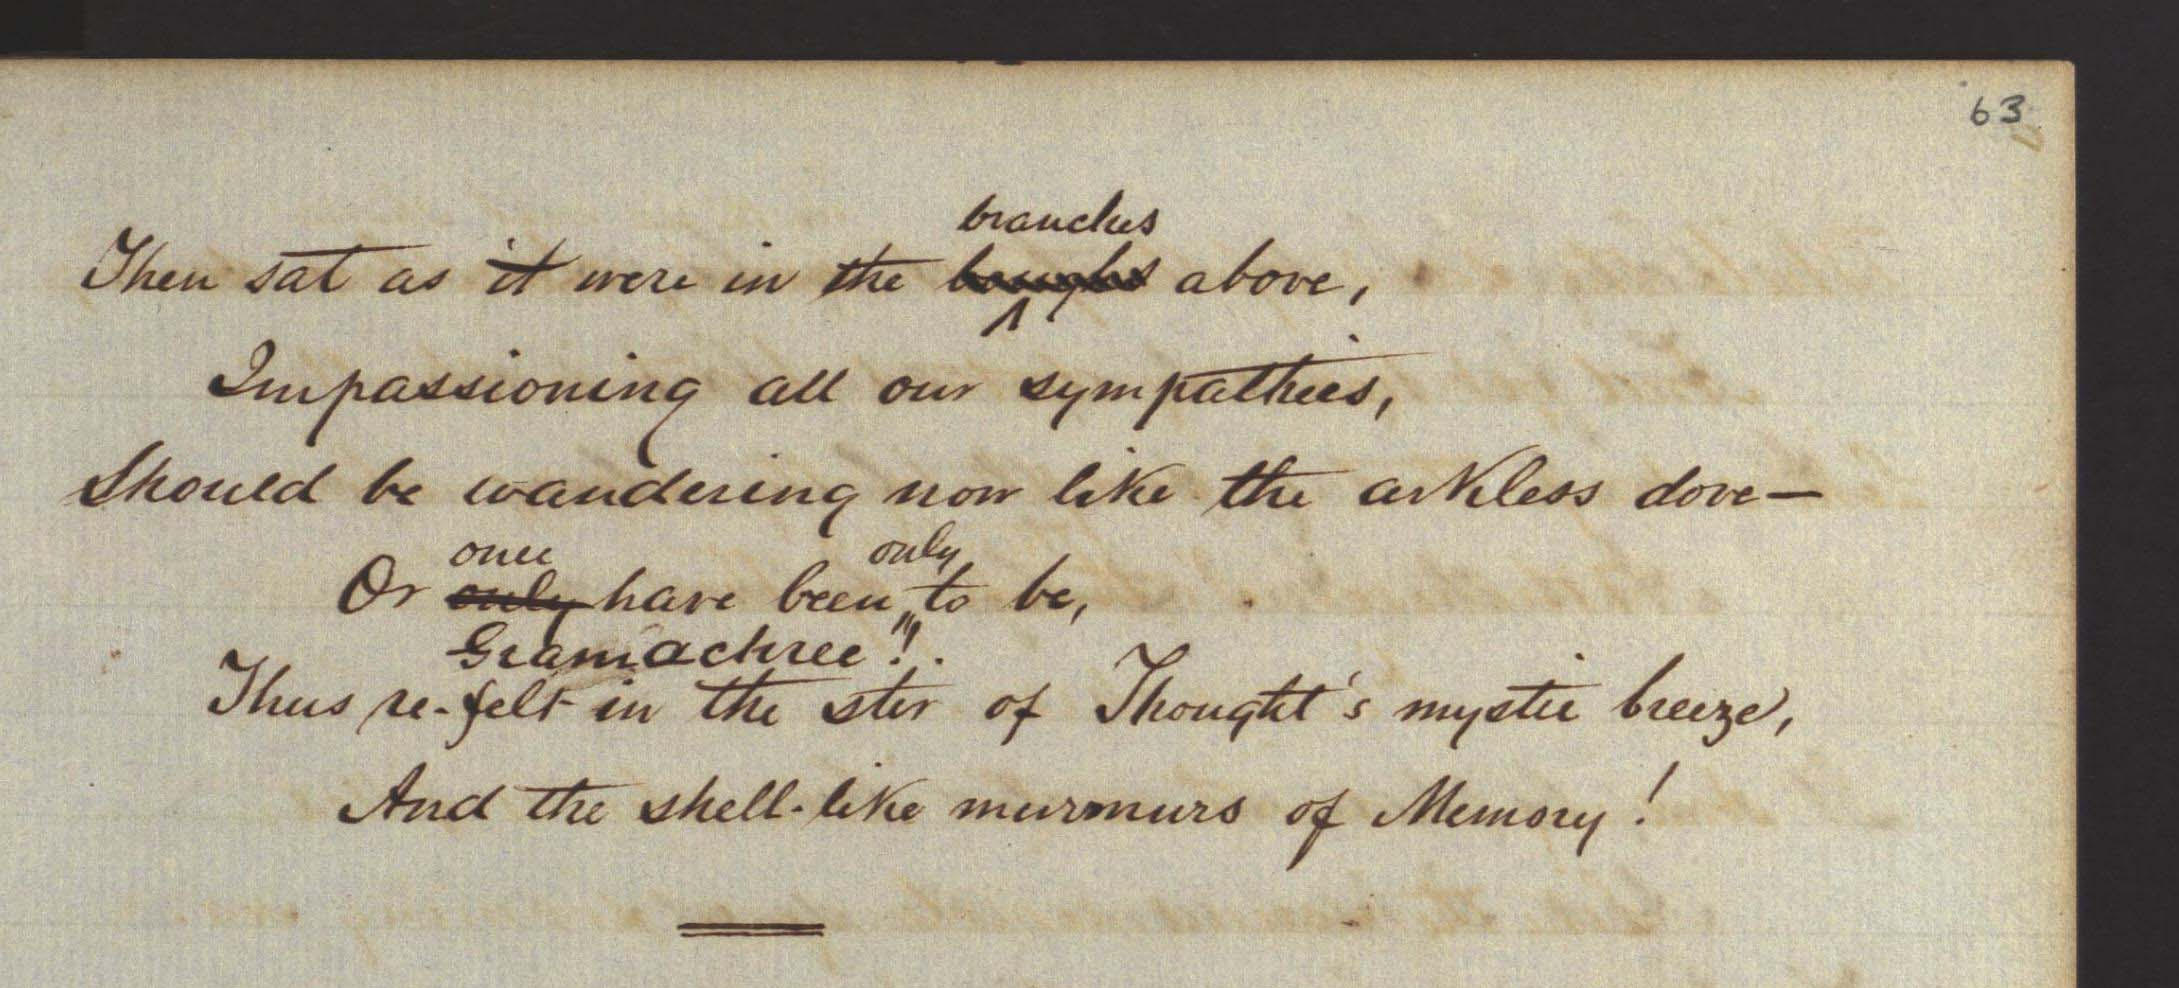 63
branches
Then sat as it were in the boughs above,
Impassioning all our sympathies,
Should be wandering now like the arkless dove—
once only
Or only have been to be,
Gramachree!!.
Thus re-felt in the stir of Thought's mystic breeze,
And the shell-like murmurs of Memory!